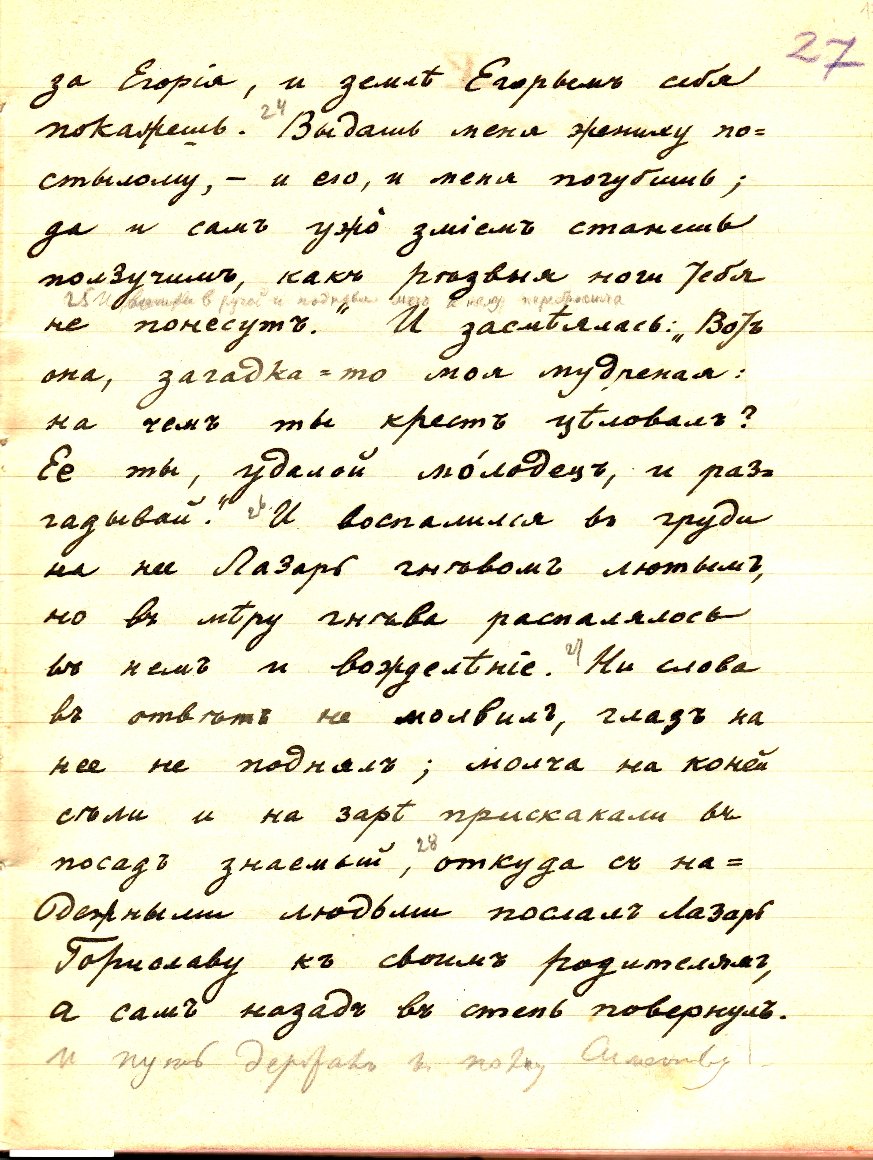 27
за Егорія, и землѣ Егорьемъ себя
покажешь. 24 Выдашь меня жениху по=
стылому, – и его, и меня погубишь;
да и самъ ужо̀ зміемъ станешь
ползучимъ, какъ рѣзвыя ноги тебя
25 И в ручей и мечъ к нему перебросила
не понесутъ." И засмѣялась: „Вотъ
она, загадка=то моя мудреная:
на чемъ ты крестъ цѣловалъ?
Ее ты, удалой мо́лодецъ, и раз=
гадывай." 26 И воспалился въ груди
на нее Лазарь гнѣвомъ лютымъ,
но въ мѣру гнѣва распалялось
въ немъ и вожделѣніе. 27 Ни слова
въ отвѣтъ не молвилъ, глазъ на
нее не поднялъ; молча на коней
сѣли и на зарѣ прискакали въ
посадъ знаемый, 28 откуда съ на=
дежными людьми послалъ Лазарь
Гориславу къ своимъ родителямъ,
а самъ назадъ въ степь повернулъ.
и путь держалъ къ